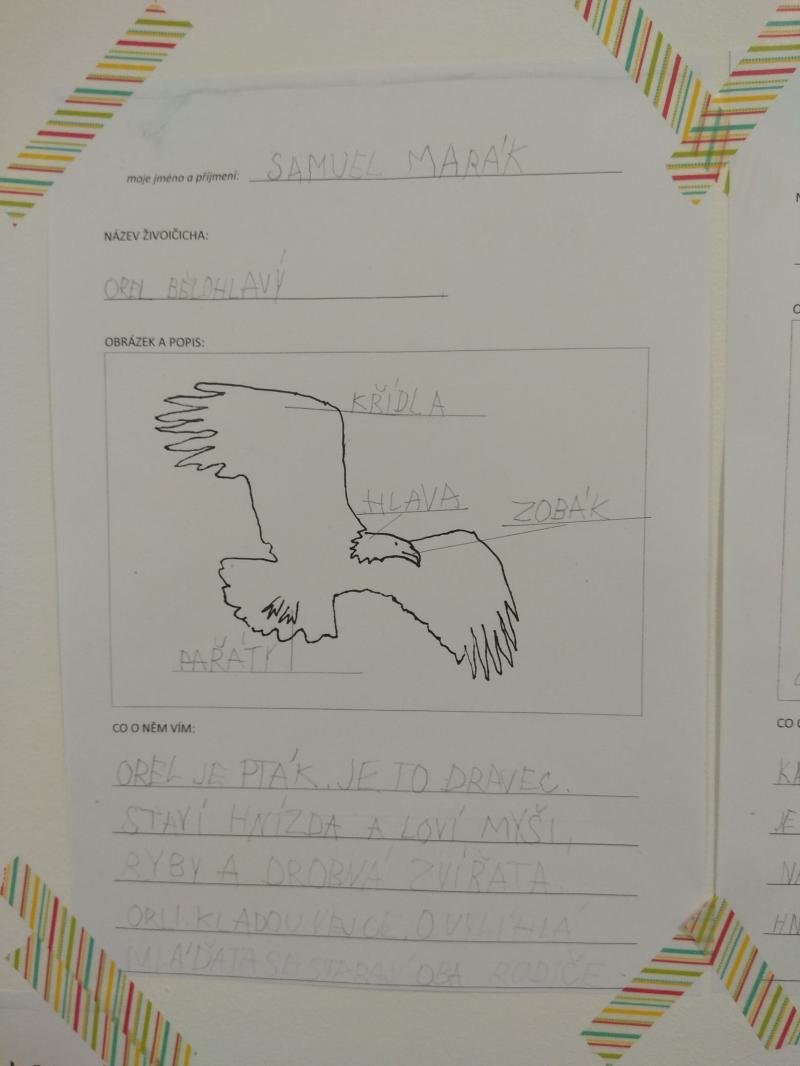 moje jméno a příjmení: SAMUEL MARÁK
NÁZEV ŽIVOIČICHA:
OREL BĚLOHLAVÝ
OBRÁZEK A POPIS:
KŘÍDLA
HLAVA
ZOBÁK
PAŘÁTY
CO O NĚM VÍM:
OREL JE PTÁK. JE TO DRAVEC.
STAVÍ HNÍZDA A LOVÍ MYŠI,
RYBY A DROBNÁ ZVÍŘATA.
ORLI KLADOU VEJCE. O VYLÍHLÁ
MLÁĎATA SE STARAJÍ OBA RODIČE.
CO
KA
JE
NA
HN